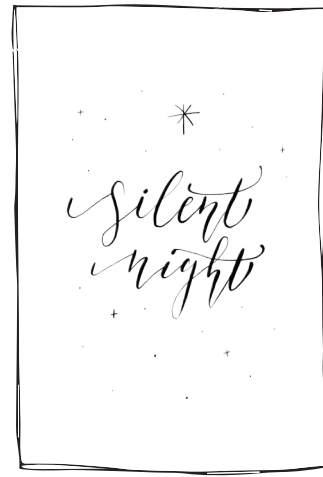 silent
night